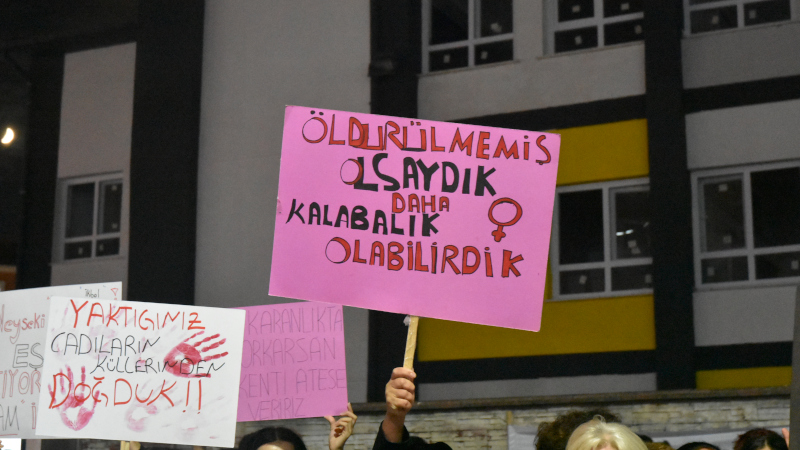 ÖLDÜRÜLMEMİŞ
OLSAYDIK
DAHA
KALABALIK
OLABİLİRDİK
YAKTIĞIMIZ
CADILARIN
KÜLLERİNDEN
DOĞDUK!!
KARANLIKTA
KORKARSAN
KENTİ ATEŞE
VERİRİZ